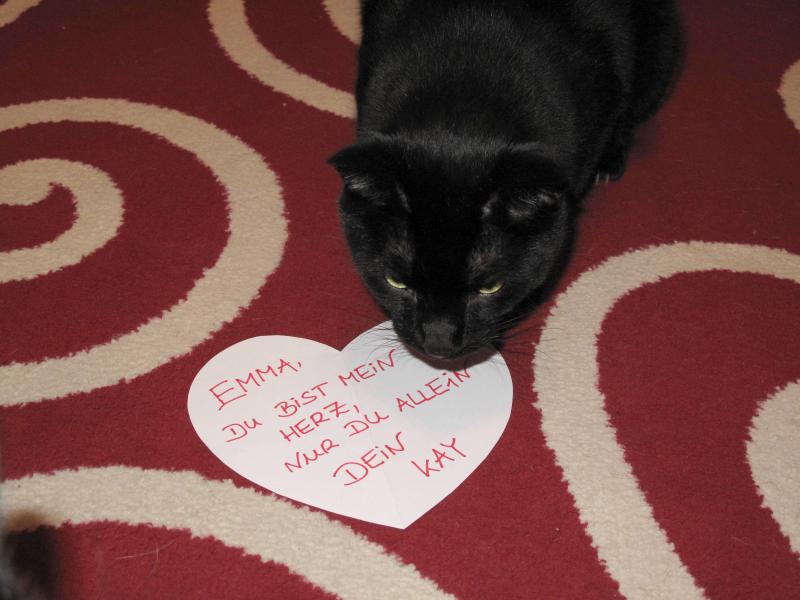 EMMA,
DU BIST MEIN
HERZ,
NUR DU ALLEIN
DEIN
KAY